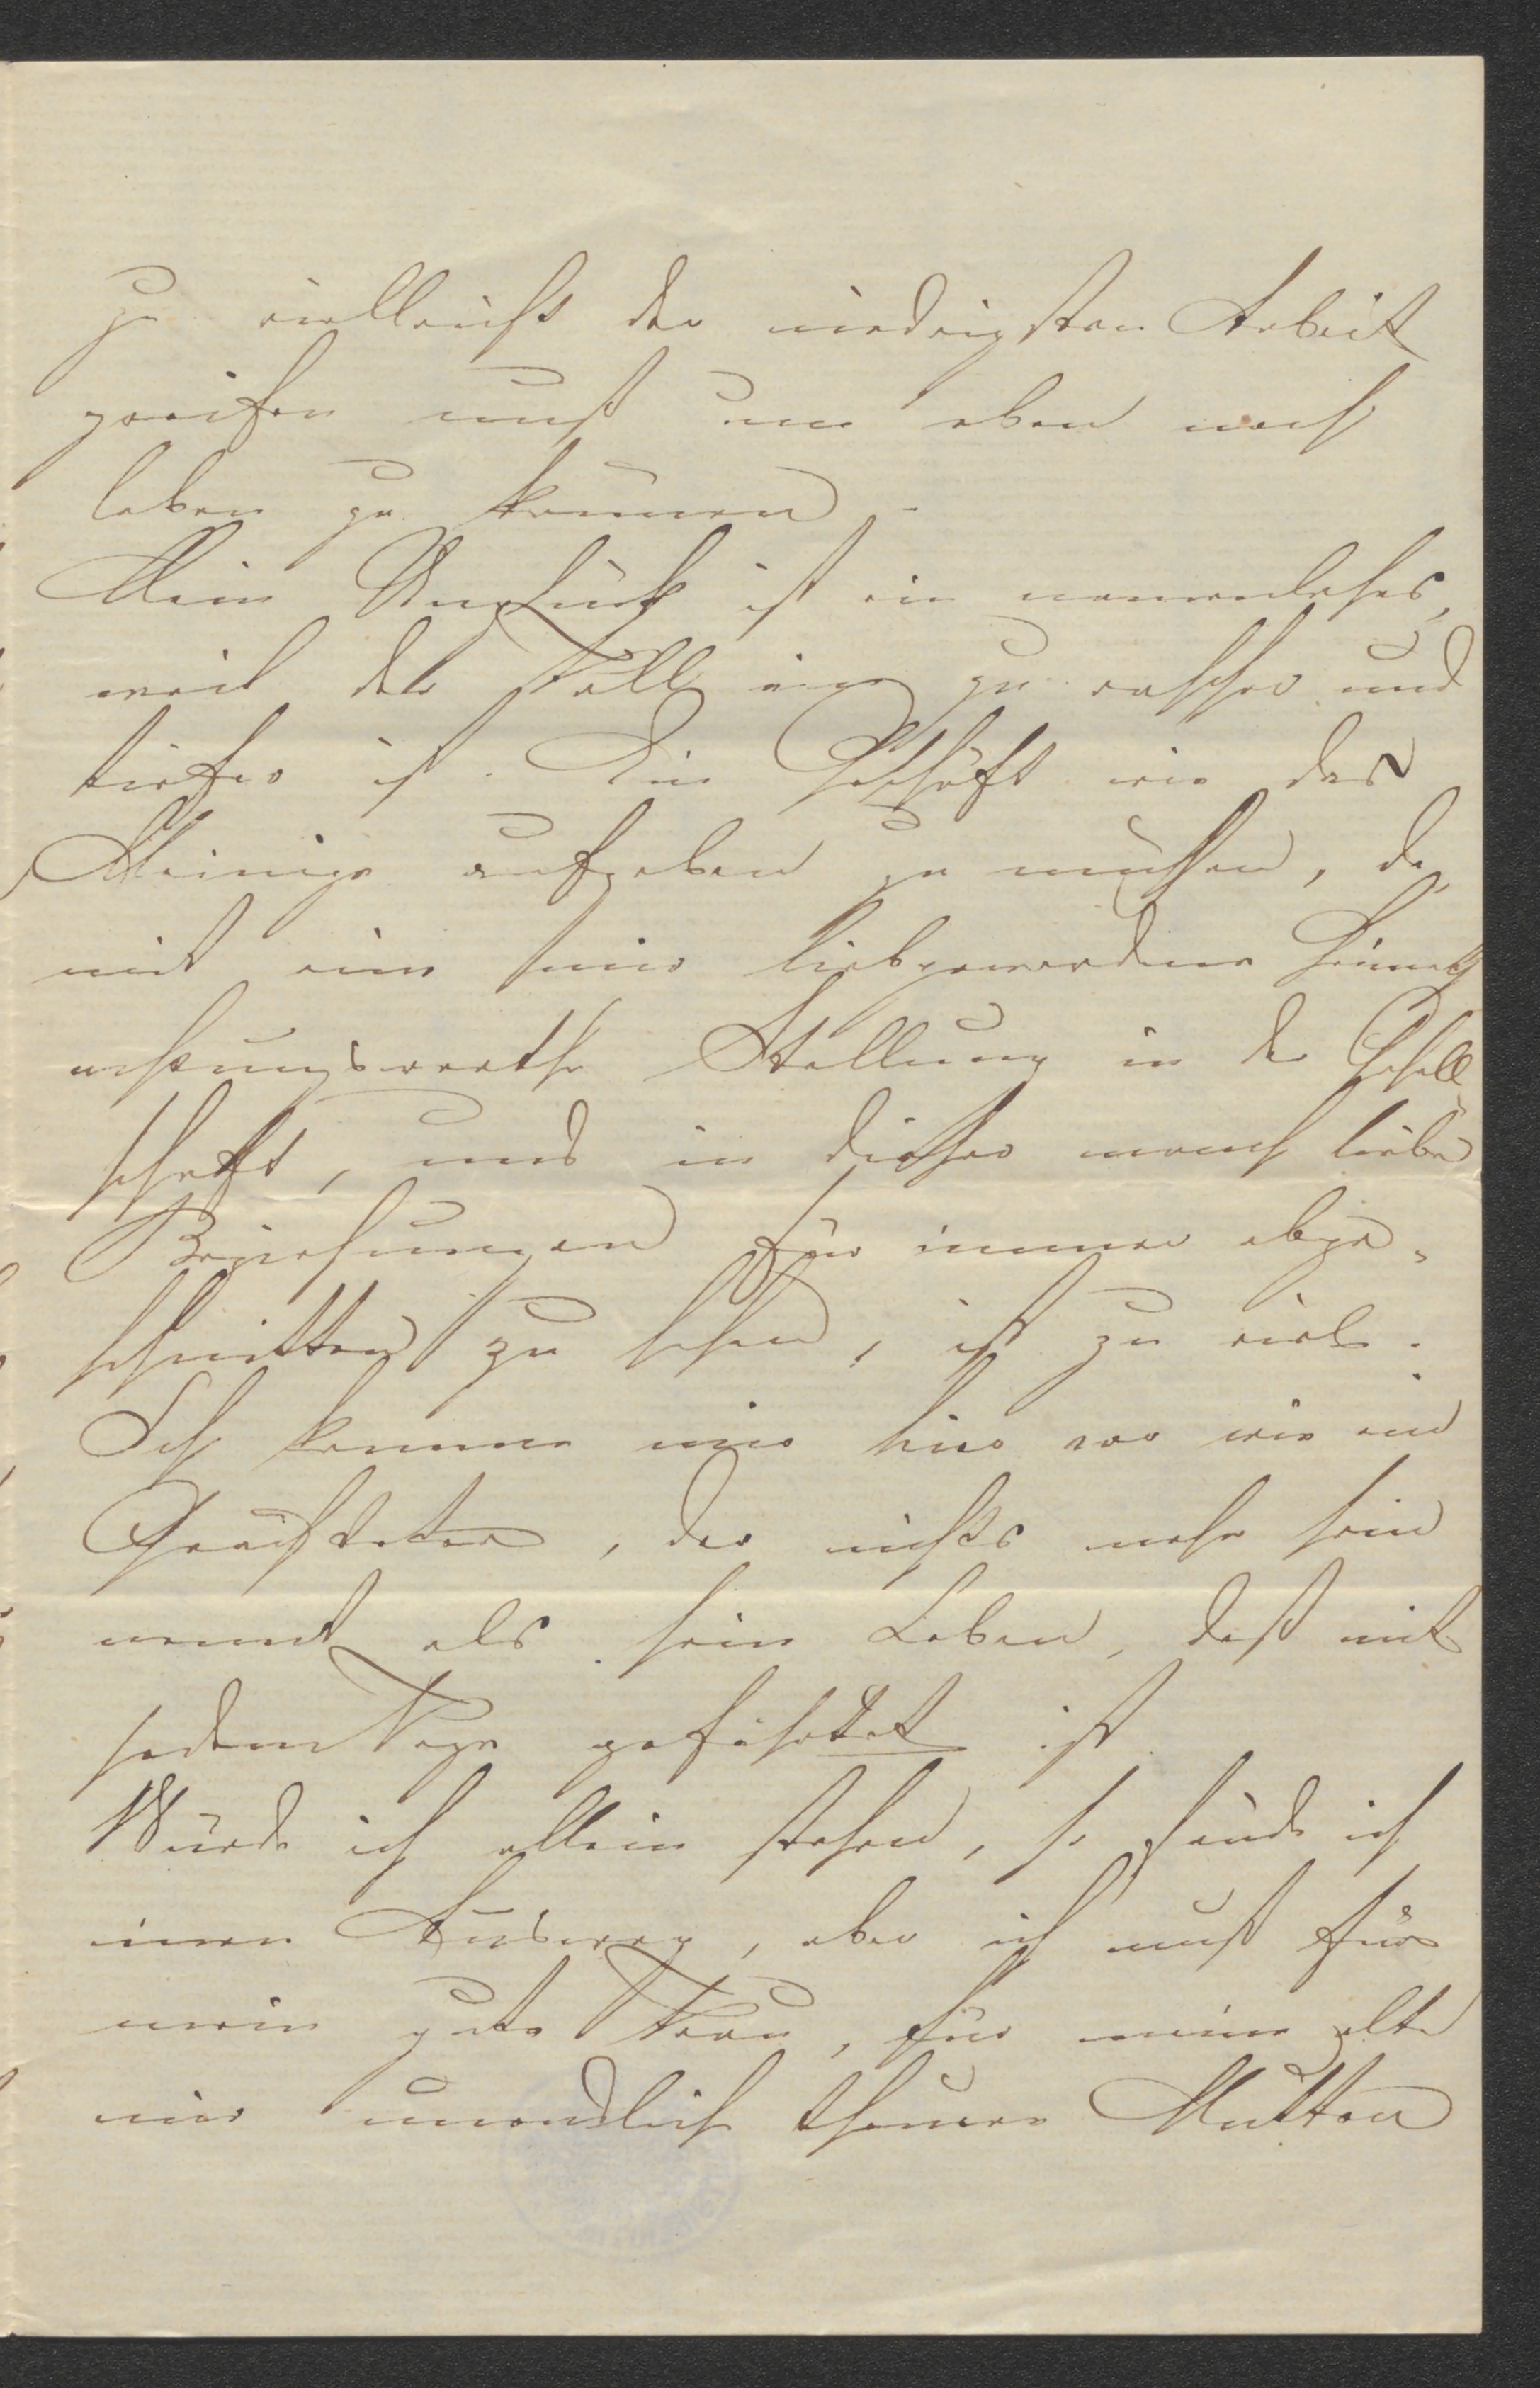 zu vielleicht der niedrigsten Arbeit
greifen muß um eben noch
leben zu können.
Mein Unglück ist ein namenloses,
weil der Fall ein zu rascher und
tiefer ist. Ein Geschäft wie das
Meinige aufgeben zu müssen, da¬
mit eine mir liebgewordene Heimath
achtungswerthe Stellung in der Gesell¬
schaft, und in dieser manch liebe
Beziehungen für immer abge¬
schnitten zu sehen, ist zu viel.
Ich komme mir hier vor wie ein
Geächteter, der nichts mehr sein
nennt als sein Leben, daß mit
jedem Tage gefährdet ist.
Würde ich allein stehen, so fände ich
einen Ausweg, aber ich muß für
meine gute Frau, für meine alte
mir unendlich theuere Mutter